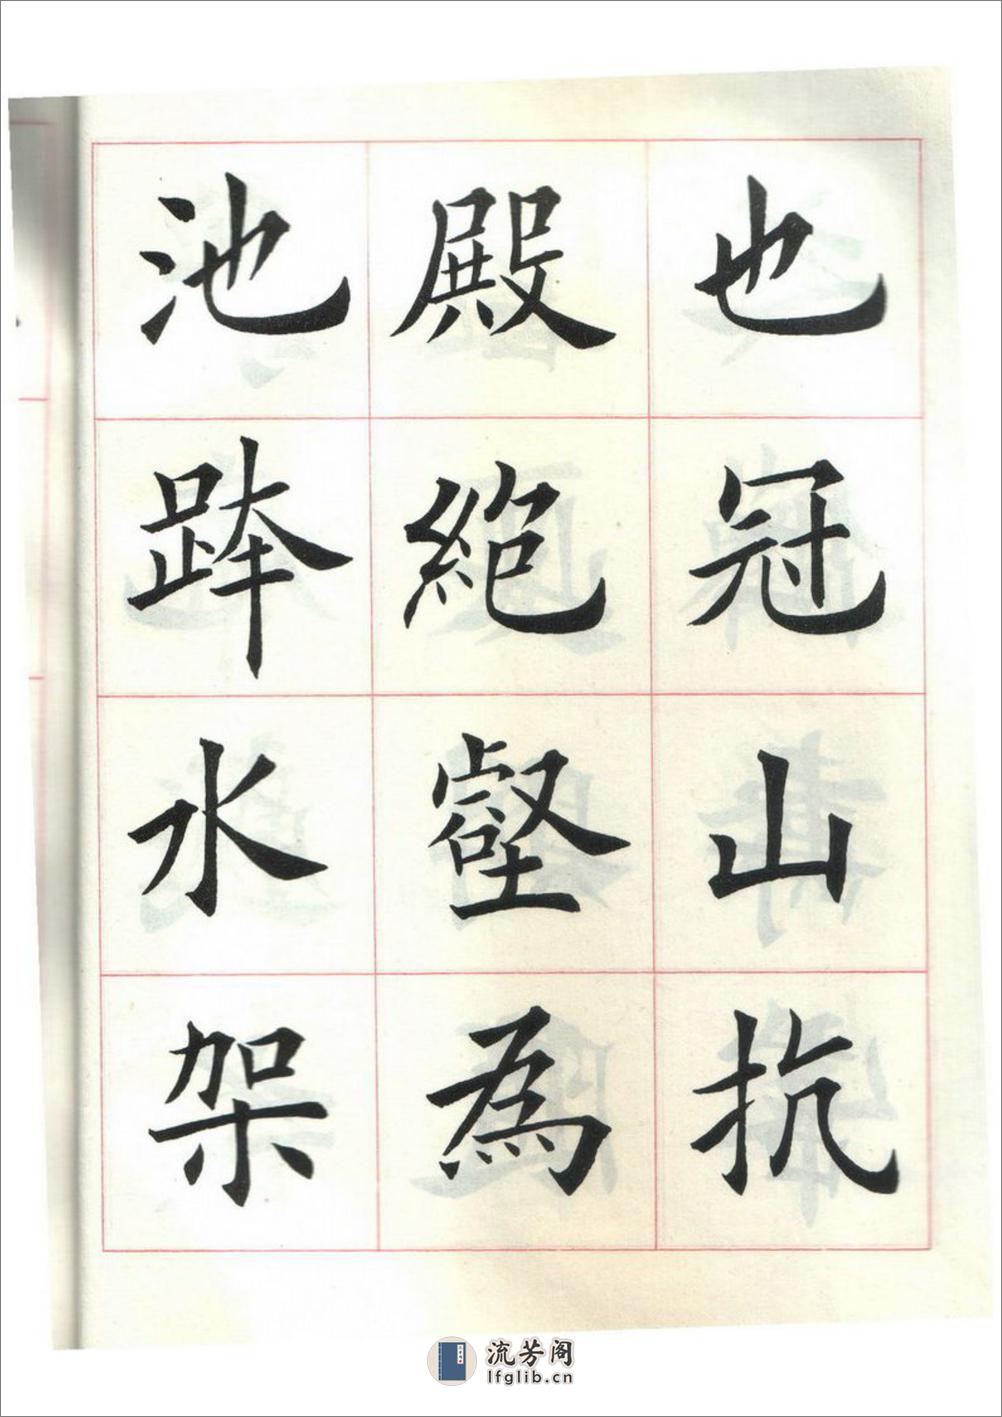 也冠山抗
殿絕壑為
池跨水架
流芳阁
lfglib.cn